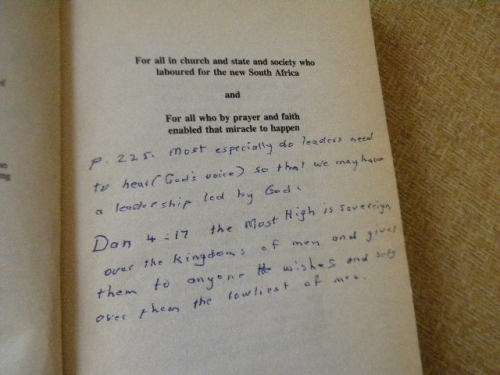 For all in church and state and society who
laboured for the new South Africa
and
For all who by prayer and faith
enabled that miracle to happen
p. 225. Most especially do leaders need
to hear (God's voice) so that we may have
a leadership led by God.
Dan 4:17 the Most High is sovereign
over the kingdoms of men and gives
them to anyone He wishes and sets
over them the lowliest of men.